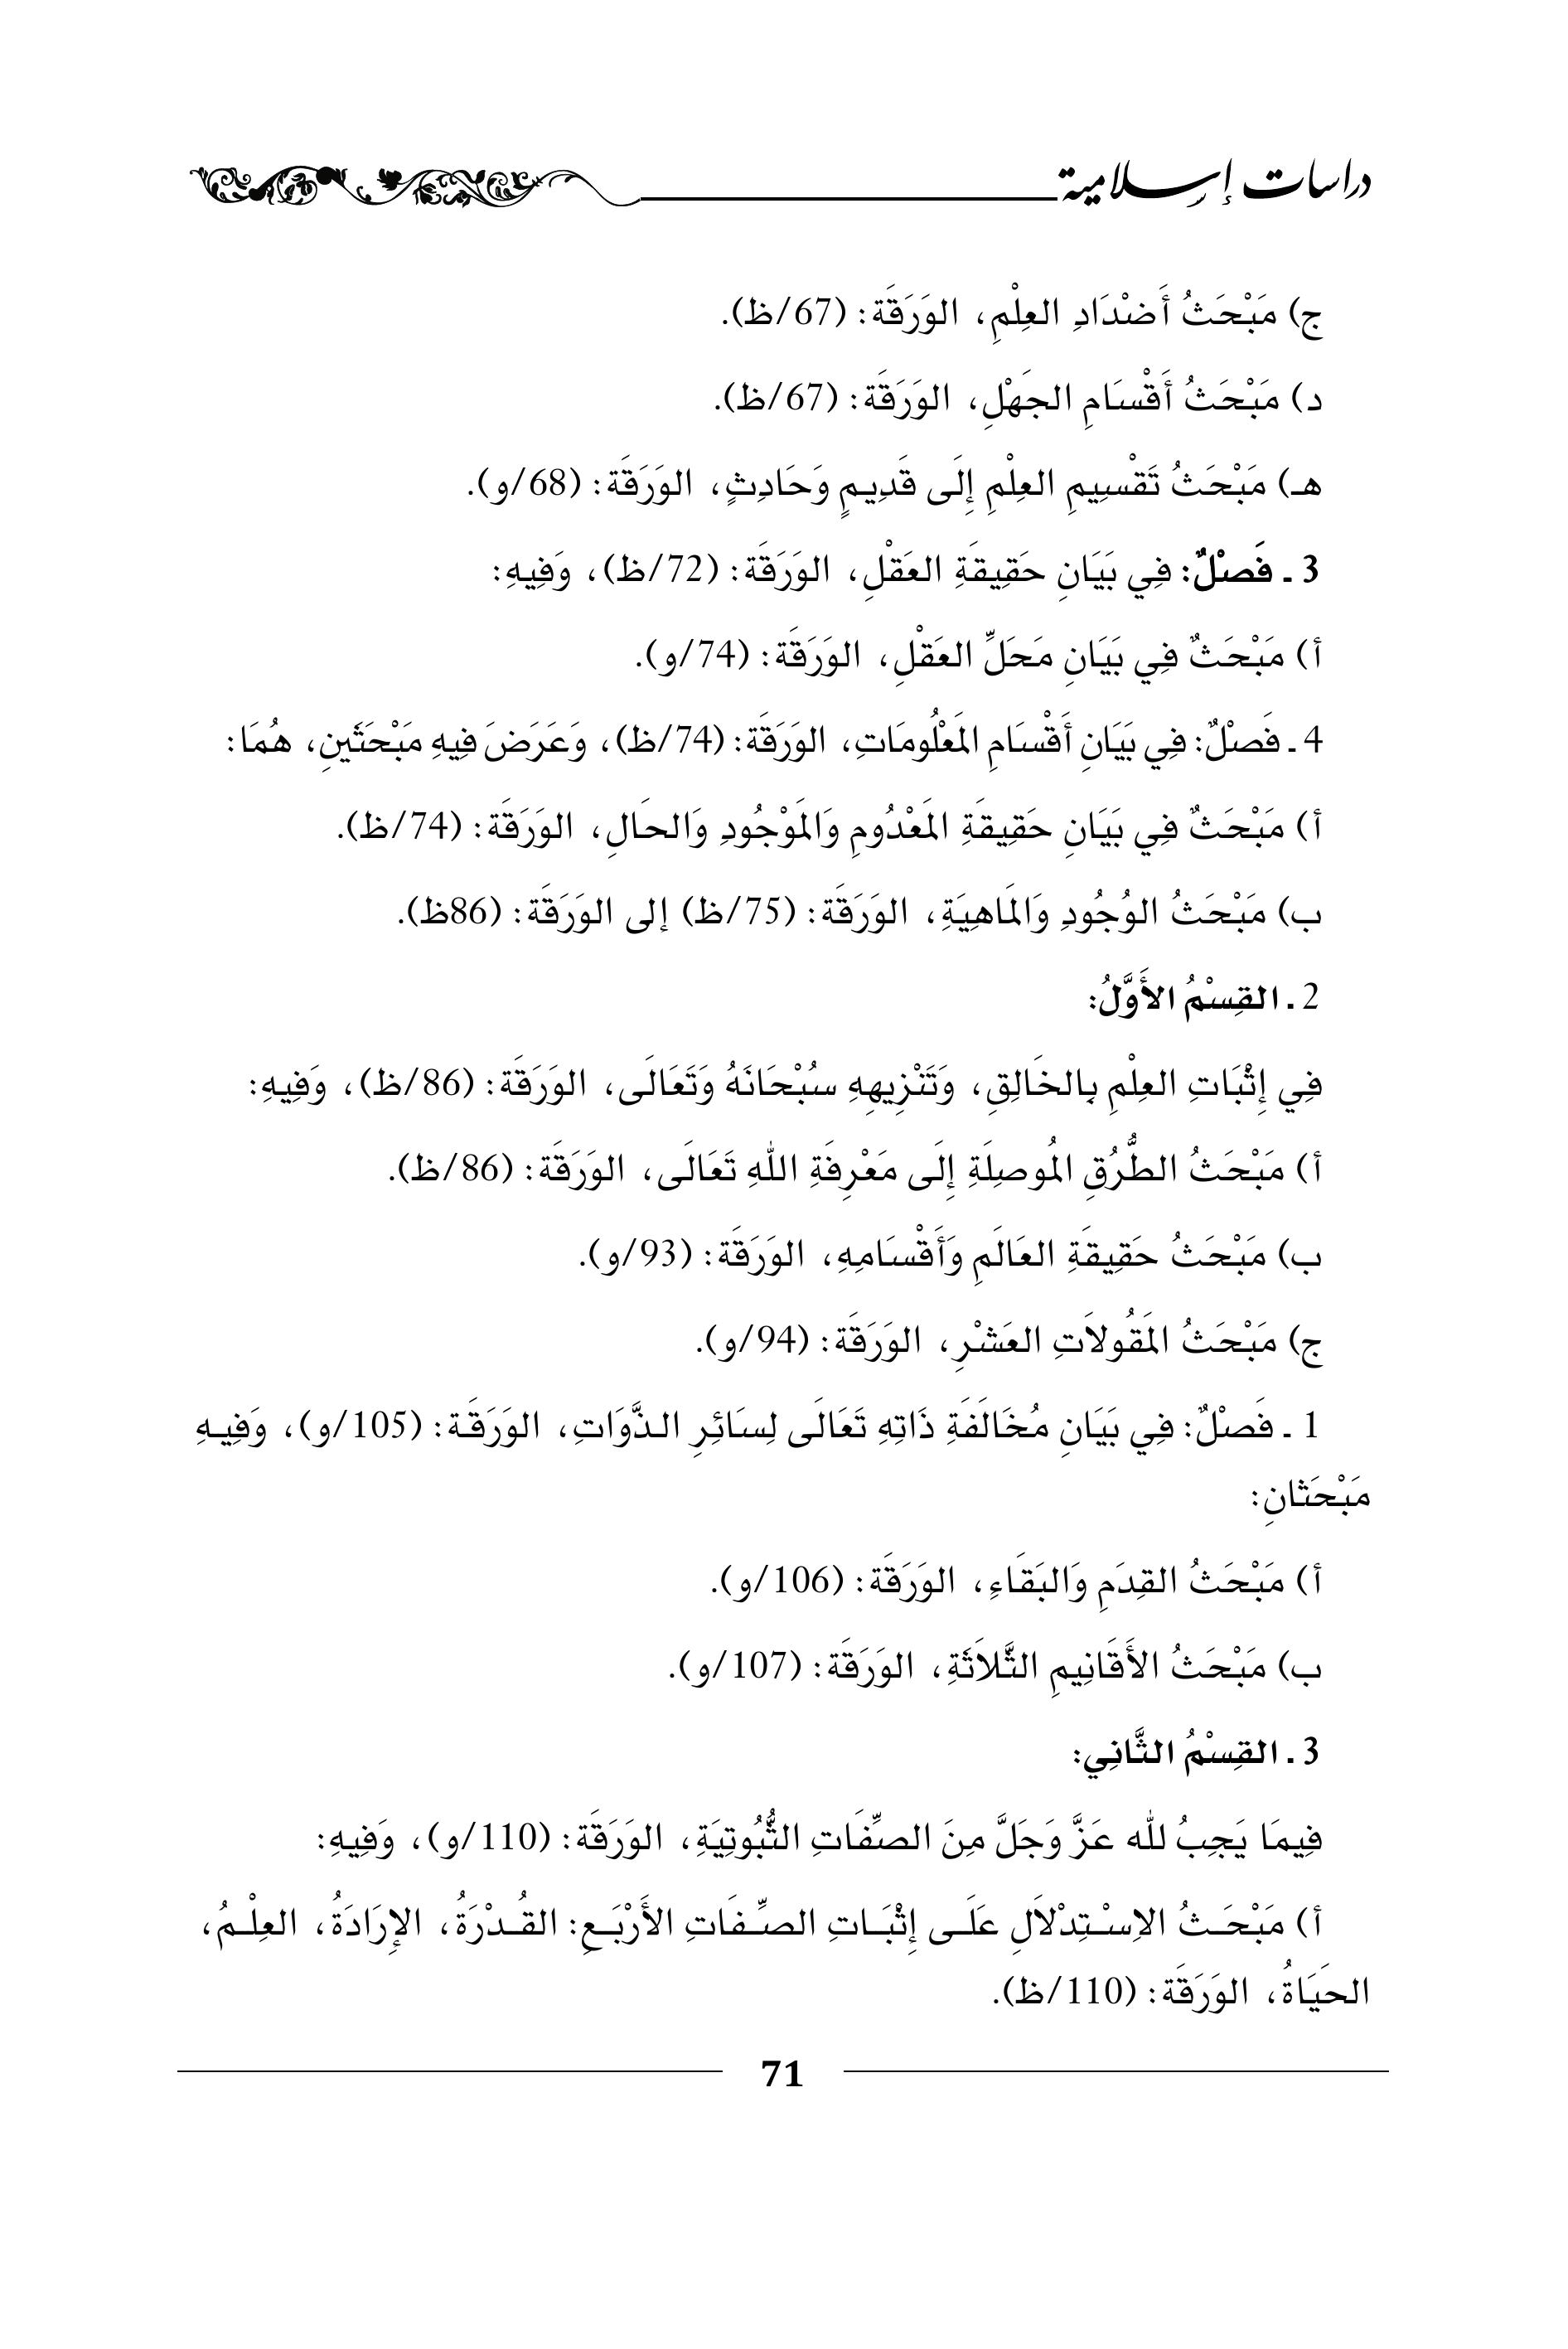 دراسات إسلامية
ج) مَبْحَثُ أَضْدَادِ العِلْمِ، الوَرَقَة: (67/ظ).
د) مَبْحَثُ أَقْسَامِ الجَهْلِ، الوَرَقَة: (67/ظ).
هـ) مَبْحَثُ تَقْسِيمِ العِلْمِ إِلَى قَدِيمٍ وَحَادِثٍ، الوَرَقَة: (68/و).
3 ـ فَصْلٌ: فِي بَيَانِ حَقِيقَةِ العَقْلِ، الوَرَقَة: (72/ظ)، وَفِيهِ:
أ) مَبْحَثٌ فِي بَيَانِ مَحَلِّ العَقْلِ، الوَرَقَة: (74/و).
4 ـ فَصْلٌ: فِي بَيَانِ أَقْسَامِ المَعْلُومَاتِ، الوَرَقَة: (74/ظ)، وَعَرَضَ فِيهِ مَبْحَثَينِ، هُمَا:
أ) مَبْحَثٌ فِي بَيَانِ حَقِيقَةِ المَعْدُومِ وَالمَوْجُودِ وَالحَالِ، الوَرَقَة: (74/ظ).
ب) مَبْحَثُ الوُجُودِ وَالمَاهِيَةِ، الوَرَقَة: (75/ظ) إلى الوَرَقَة: (86ظ).
2 ـ القِسْمُ الأَوَّلُ:
فِي إِثْبَاتِ العِلْمِ بِالخَالِقِ، وَتَنْزِيهِهِ سُبْحَانَهُ وَتَعَالَى، الوَرَقَة: (86/ظ)، وَفِيهِ:
أ) مَبْحَثُ الطُّرُقِ المُوصِلَةِ إِلَى مَعْرِفَةِ اللهِ تَعَالَى، الوَرَقَة: (86/ظ).
ب) مَبْحَثُ حَقِيقَةِ العَالَمِ وَأَقْسَامِهِ، الوَرَقَة: (93/و).
ج) مَبْحَثُ المَقُولاَتِ العَشْرِ، الوَرَقَة: (94/و).
1 ـ فَصْلٌ: فِي بَيَانِ مُخَالَفَةِ ذَاتِهِ تَعَالَى لِسَائِرِ الذَّوَاتِ، الوَرَقَة: (105/و)، وَفِيهِ
مَبْحَثانِ:
أ) مَبْحَثُ القِدَمِ وَالبَقَاءِ، الوَرَقَة: (106/و).
ب) مَبْحَثُ الأَقَانِيمِ الثَّلاَثَةِ، الوَرَقَة: (107/و).
3 ـ القِسْمُ الثَّانِي:
فِيمَا يَجِبُ لله عَزَّ وَجَلَّ مِنَ الصِّفَاتِ الثُّبُوتِيَةِ، الوَرَقَة: (110/و)، وَفِيهِ:
أ) مَبْحَـثُ الاِسْـتِدْلاَلِ عَلَـى إِثْبَـاتِ الصِّـفَاتِ الأَرْبَـعِ: القُـدْرَةُ، الإِرَادَةُ، العِلْـمُ،
الحَيَاةُ، الوَرَقَة: (110/ظ).
71